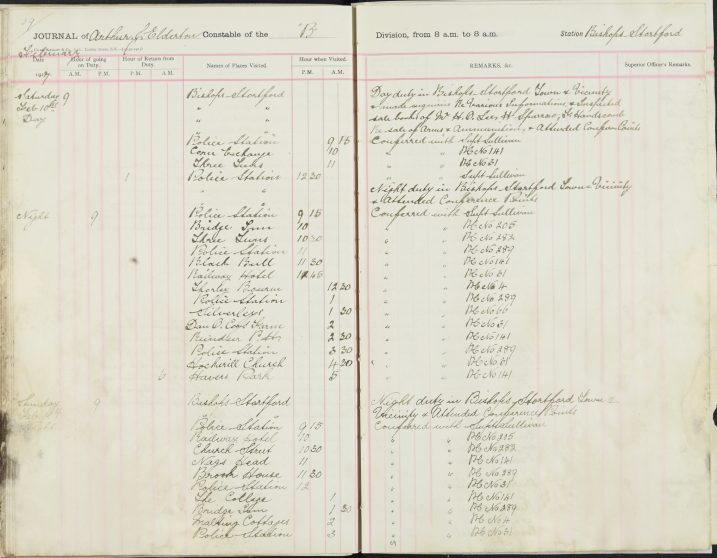 JOURNAL of Arthur Elderton Constable of the "B" Division, from 8 a.m. to 8 a.m. Station Bishops Stortford
Date Hour of going on Duty. Hour of Return from Duty. Names of Places Visited. Hour when Visited. REMARKS, &c. Superior Officer's Remarks.
A.M. P.M. A.M. P.M. P.M. A.M.
Saturday 9 Bishops Stortford Day duty in Bishops Stortford Town & Vicinity
Feb 10th " " & made enquiries Re Various Information & Suspected
Day " " sale books of Mr H. A. H Sparrow,
Re sale of Arms & Ammunition, & Attended Conference Points
Police Station 9 15 Conferred with Supt Sullivan
Corn Exchange 10 " " PC No 141
Three Tuns 11 " " PC No 31
1 Police Station 12 30 " " Supt Sullivan
" " Night duty in Bishops Stortford Town & Vicinity
" & Attended Conference Points
Night 9 Police Station 9 15 Conferred with Supt Sullivan
Bridge Inn 10 " " PC No 205
Three Tuns 10 30 " " PC No 282
Police Station 11 " " PC No 289
Black Bull 11 30 " " PC No 141
Railway Hotel 11 45 " " PC No 31
Thorley Bourne 12 30 " " PC No 4
Police Station 1 " " PC No 289
Silverleys 1 30 " " PC No 66
Dan O. Coos Farm 2 " " PC No 31
Reindeer 2 30 " " PC No 141
Police Station 3 30 " " PC No 289
Hockerill Church 4 30 " " PC No 31
6 Havers Park 5 " " PC No 141
Sunday 9 Bishops Stortford Night duty in Bishops Stortford Town &
Feb 11th " " Vicinity & Attended Conference Points
Night Police Station 9 15 Conferred with Supt Sullivan
Railway Hotel 10 " " PC No 225
Church Street 10 30 " " PC No 282
Nags Head 11 " " PC No 141
Brook House 11 30 " " PC No 289
Police Station 12 " " PC No 31
The College 1 " " PC No 141
Bridge Inn 1 30 " " PC No 289
Malting Cottages 2 " " PC No 4
Police Station 3 " " PC No 31